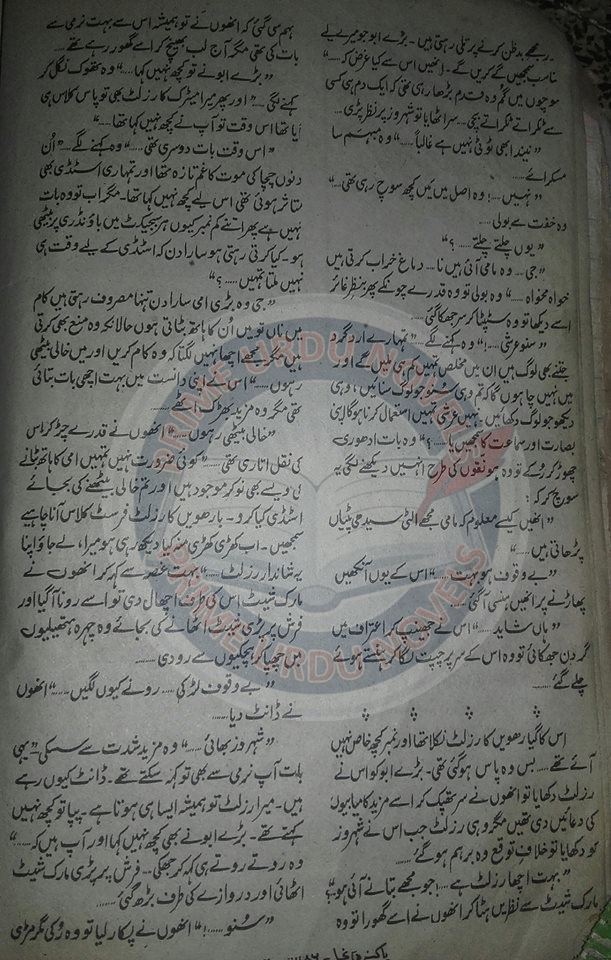 رہتی مجھے بدظن کرنے پر تلی رہتی ہیں۔ بڑے ابو جو میرے لیے
مناسب سمجھیں گے کریں گے۔ انھیں اس سے کیا غرض کہ......“
سوچوں میں گم وہ قدم بڑھا رہی تھی کہ ایک دم ہی کسی
سے ٹکراتے ٹکراتے بچی۔ سر اٹھایا تو شہروز پر نظر پڑی۔
”نیند ابھی ٹوٹی نہیں ہے غالباً......“ وہ مبہم سا
مسکرائے۔
”نہیں......! وہ اصل میں مَیں کچھ سوچ رہی تھی......“
وہ خفت سے بولی۔
”یوں چلتے چلتے......؟“
”جی...... وہ مامی آئی ہیں نا... دماغ خراب کرتی ہیں
خواہ مخواہ......“ وہ بولی تو وہ قدرے چونکے پھر بنظر غائر
اسے دیکھا تو وہ سٹپٹا کر سر جھکا گئی۔
”سنو عرشی......!“ وہ کہنے لگے۔ ”تمہارے ارد گرد
جتنے بھی لوگ ہیں ان میں مخلص تمہیں کم ہی ملیں گے اور
میں نہیں چاہوں گا کہ تم وہی سنو جو لوگ سنائیں، وہی
دیکھو جو لوگ دکھائیں۔ نہیں عرشی تمہیں استعمال کرنا ہوگا اپنی
بصارت اور سماعت کا سمجھیں یا......؟“ وہ بات ادھوری
چھوڑ کر رکے تو وہ ہونقوں کی طرح انہیں دیکھنے لگی یہ
سوچ کر کہ:
”انھیں کیسے معلوم کہ مامی مجھے الٹی سیدھی پٹیاں
پڑھاتی ہیں......“
”بے وقوف ہو بہت......“ اس کے یوں آنکھیں
پھاڑنے پر انھیں ہنسی آ گئی۔
”ہاں شاید......“ اس نے جھینپ کر اعتراف میں
گردن جھکائی تو وہ اس کے سر پر چپت لگا کر ہنستے ہوئے
چلے گئے......
اس کا گیارھویں کا رزلٹ نکلا تھا اور نمبر کچھ خاص نہیں
آئے تھے...... بس وہ پاس ہو گئی تھی۔ بڑے ابو کو اس نے
رزلٹ دکھایا تو انھوں نے سر تھپک کر اسے مزید کامیابیوں
کی دعائیں دی تھیں مگر وہی رزلٹ جب اس نے شہروز
کو دکھایا تو خلاف توقع وہ برہم ہو گئے......
”بہت اچھا رزلٹ ہے......! جو مجھے بتانے آئی ہو؟“
مارک شیٹ سے نظریں ہٹا کر انھوں نے اسے گھورا تو وہ
ہم سی گئی کہ انھوں نے تو ہمیشہ اس سے بہت نرمی سے
بات کی تھی مگر آج لب بھینچ کر اسے گھور رہے تھے۔
”بڑے ابو نے تو کچھ نہیں کہا......“ وہ تھوک نگل کر
کہنے لگی...... ”اور پھر میرا میٹرک کا رزلٹ بھی تو پاس کلاس ہی
آیا تھا اس وقت تو آپ نے کچھ نہیں کہا تھا......“
”اس وقت بات دوسری تھی......“ وہ کہنے لگے۔ ”اُن
دنوں چچا کی موت کا غم تازہ تھا اور تمہاری اسٹڈی بھی
متاثر ہوئی تھی اس لیے کچھ نہیں کہا تھا۔ مگر اب تو وہ بات
نہیں ہے پھر اتنے کم نمبر کیوں ہر سبجیکٹ میں باؤنڈری پر بیٹھی
ہو۔ کیا کرتی رہتی ہو سارا دن کہ اسٹڈی کے لیے وقت ہی
نہیں ملتا تمہیں......؟“
”جی وہ بڑی امی سارا دن تنہا مصروف رہتی ہیں کام
میں ناں تو میں اُن کا ہاتھ بٹاتی ہوں حالانکہ وہ منع بھی کرتی
ہیں مگر مجھے اچھا نہیں لگتا کہ وہ کام کریں اور میں خالی بیٹھی
رہوں......“ اس نے اپنی دانست میں بہت اچھی بات بتائی
تھی مگر وہ مزید بھڑک اٹھے......
”خالی بیٹھی رہوں......“ انھوں نے قدرے چڑ کر اس
کی نقل اتاری تھی...... ”کوئی ضرورت نہیں تمہیں امی کا ہاتھ بٹانے
کی ویسے بھی نوکر موجود ہیں اور تم خالی بیٹھنے کی بجائے
اسٹڈی کیا کرو۔ بارھویں کا رزلٹ فرسٹ کلاس آنا چاہیے
سمجھیں۔ اب کھڑی کھڑی منہ کیا دیکھ رہی ہو میرا، لے جاؤ اپنا
یہ شاندار رزلٹ......“ بہت غصے سے کہہ کر انھوں نے
مارک شیٹ اس کی طرف اچھال دی تو اسے رونا آ گیا اور
فرش پر پڑی شیٹ اٹھانے کی بجائے وہ چہرہ ہتھیلیوں
میں چھپا کر ہچکیوں سے رو دی۔
”بے وقوف لڑکی...... رونے کیوں لگیں......“ انھوں
نے ڈانٹ دیا......
”شہروز بھائی......“ وہ مزید شدت سے سسکی ”یہی
بات آپ نرمی سے بھی تو کہہ سکتے تھے۔ ڈانٹ کیوں رہے
ہیں۔ میرا رزلٹ تو ہمیشہ ایسا ہی ہوتا ہے۔ پپا تو کچھ نہیں
کہتے تھے۔ بڑے ابو نے بھی کچھ نہیں کہا اور آپ ہیں کہ......“
وہ روتے روتے ہی کہہ کر جھکی...... فرش پر پڑی مارک شیٹ
اٹھائی اور دروازے کی طرف بڑھ گئی......
”سنو......!“ انھوں نے پکار لیا تو وہ رکی مگر مڑی
PRIME URDU NOVELS
PRIME URDU NOVELS